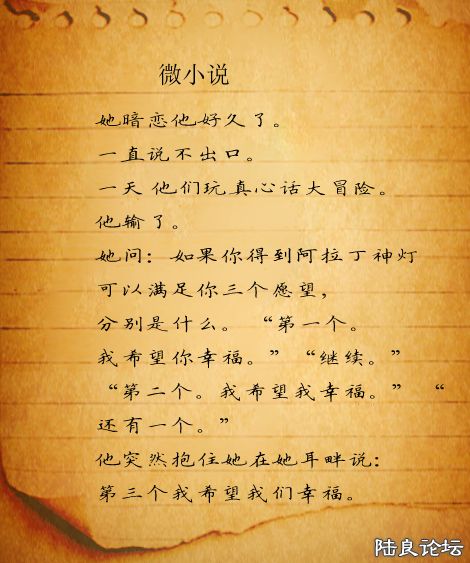 微小说
她暗恋他好久了。
一直说不出口。
一天他们玩真心话大冒险。
他输了。
她问：如果你得到阿拉丁神灯
可以满足你三个愿望，
分别是什么。“第一个。
我希望你幸福。”“继续。”
“第二个。我希望我幸福。”“
还有一个。”
他突然抱住她在她耳畔说：
第三个我希望我们幸福。
陆良论坛